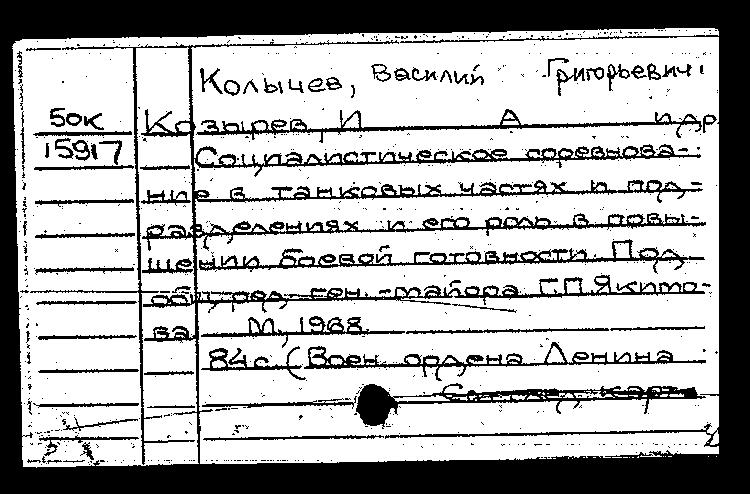 Колычев, Василий Григорьевич.
50к Козырев, И А и др
15917 Социалистическое соревнова-
ние в танковых частях и под-
разделениях и его роль в повы-
шении боевой готовности. Под
общ. ред. ген.-майора Г.П.Якимо-
ва М., 1968.
84 с (Воен. ордена Ленина
См. след. карт.